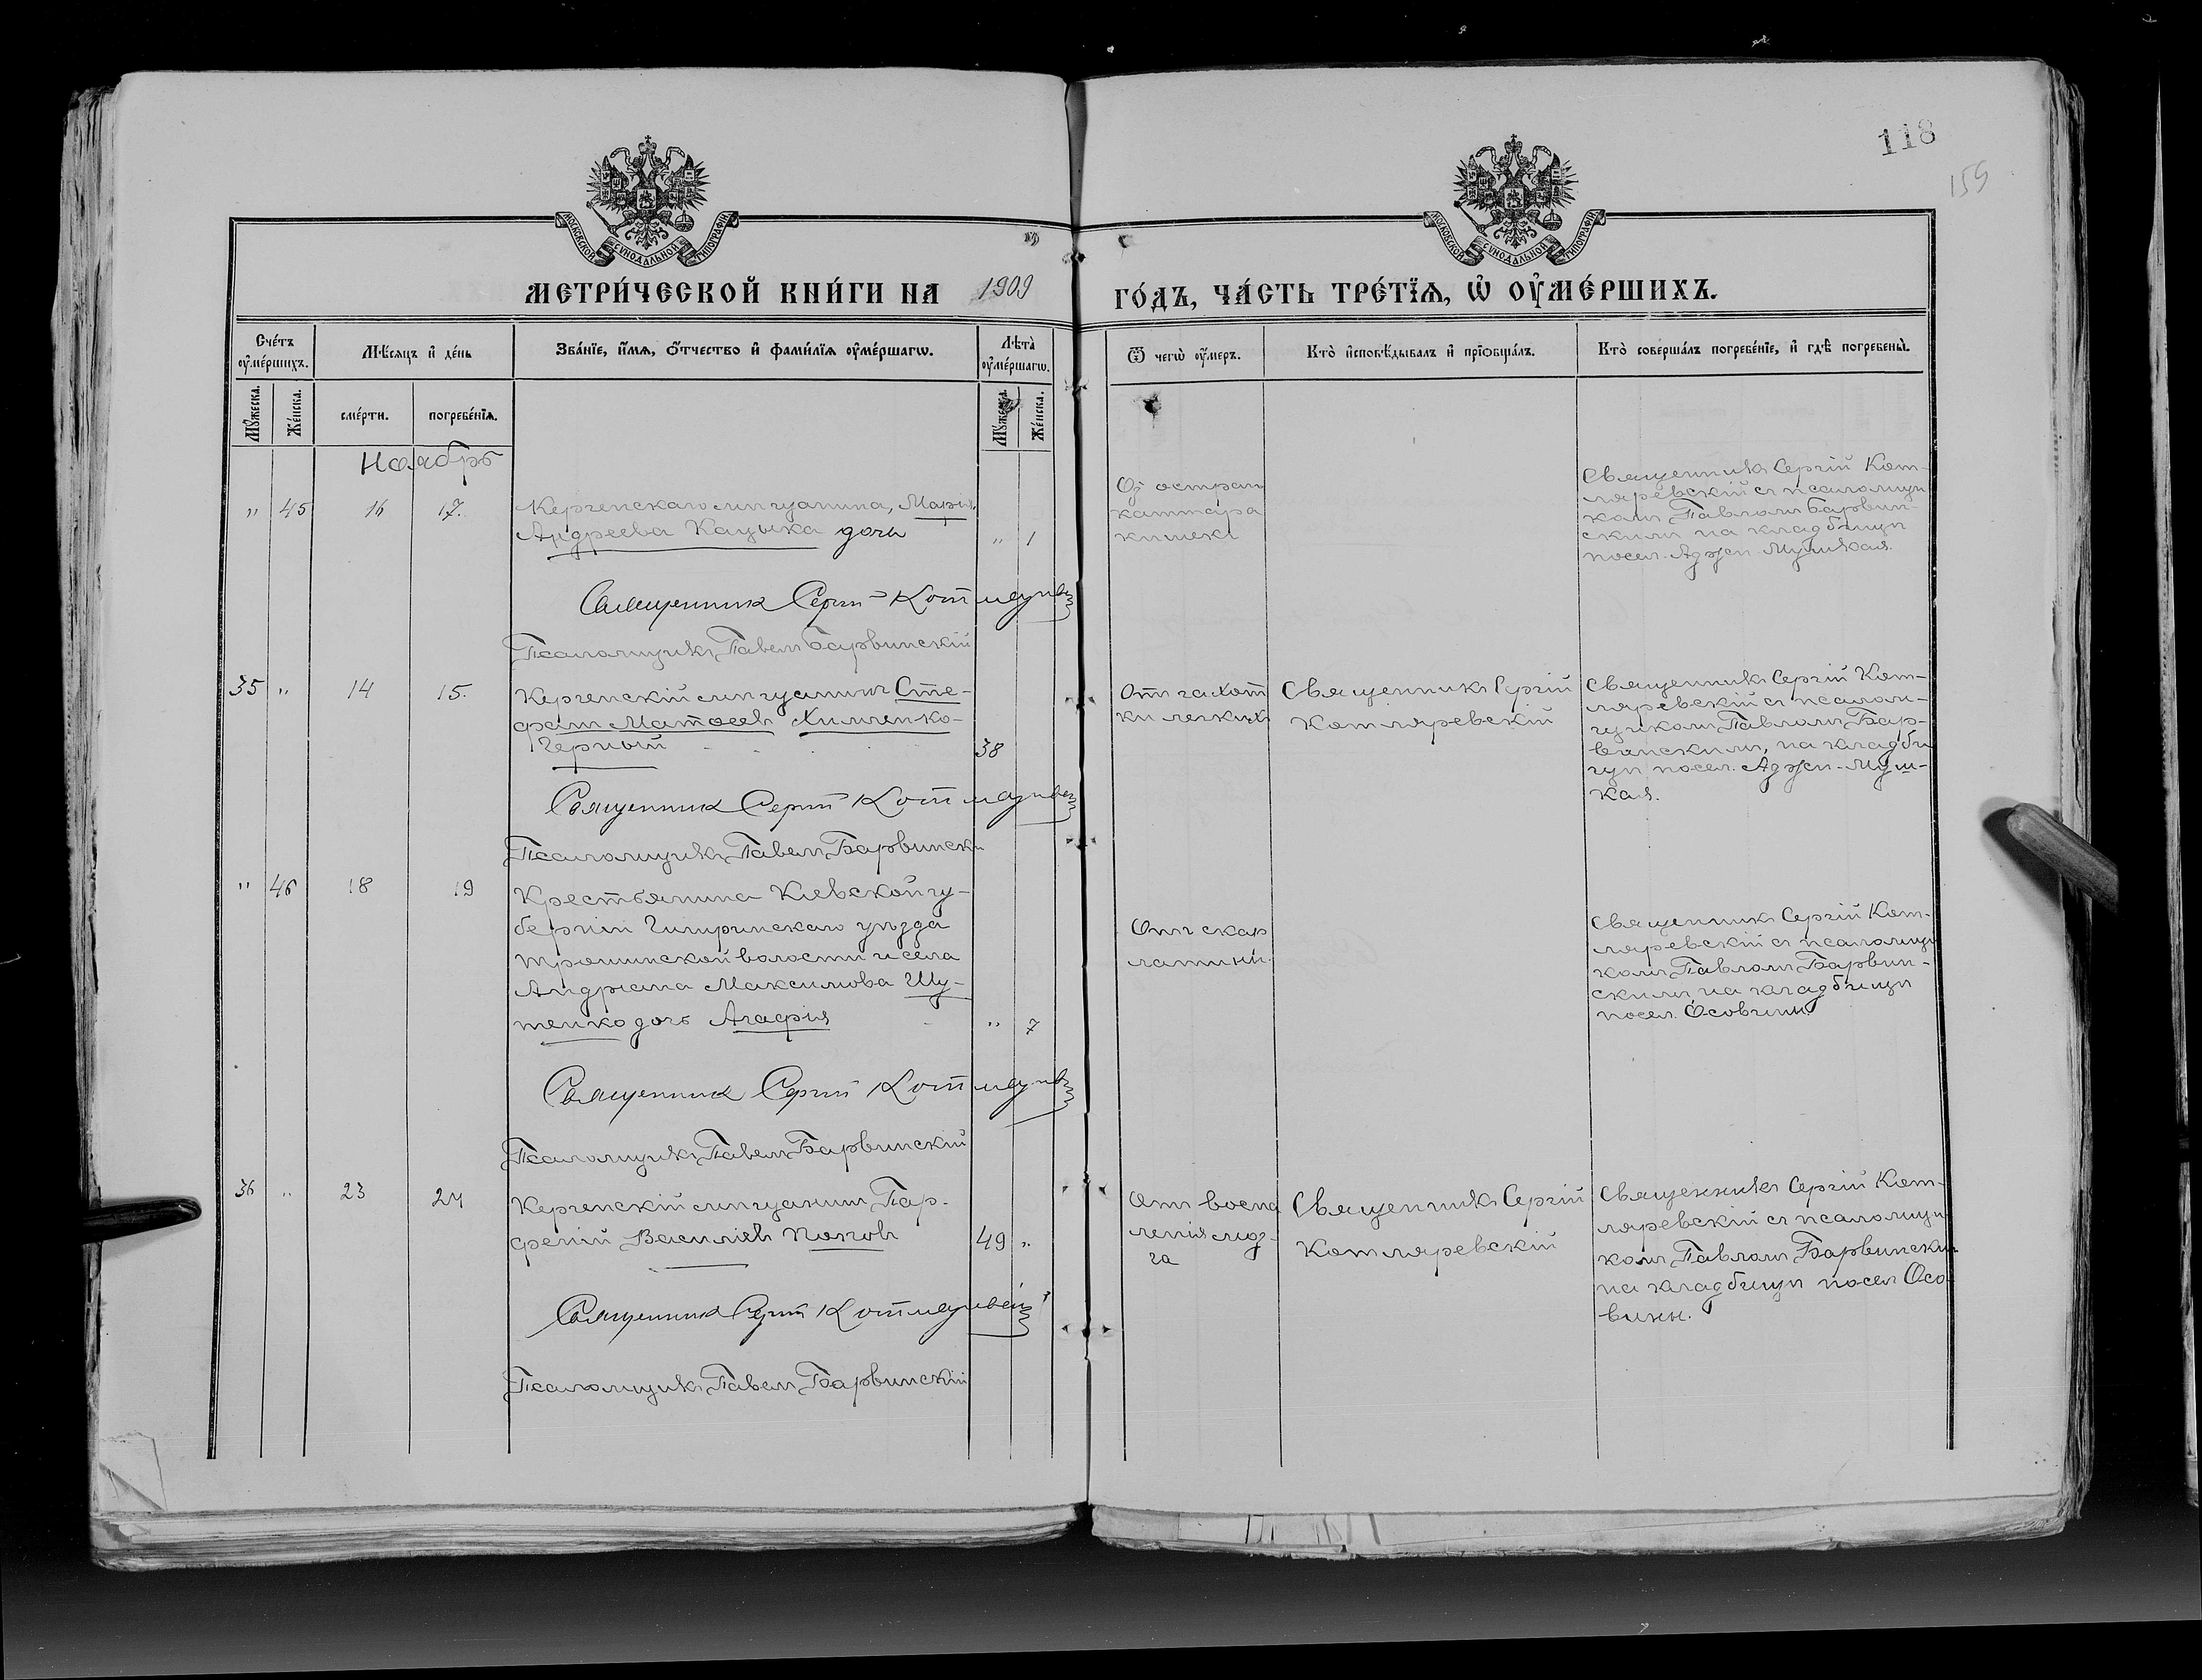 118
159
МОСКОВСКОЙ СѴНОДАЛЬНОЙ ТИПОГРАФІИ
МОСКОВСКОЙ СѴНОДАЛЬНОЙ ТИПОГРАФІИ
МЕТРИ́ЧЕСКОЙ КНИ́ГИ НА 1909 ГО́ДЪ, ЧА́СТЬ ТРЕ́ТЇѦ, Ѡ҆ ОУ҆МЕ́РШИХЪ.
Сче́тъ оу҆ме́ршихъ.
Мѣ́сяцъ и҆ де́нь
Зва́нїе, и҆́мѧ, ѻ҆́тчество и҆ фами́лїѧ оу҆ме́ршагѡ.
Лѣ́та оу҆ме́ршагѡ.
Ѿ чегѡ̀ оу҆́меръ.
Кто̀ и҆сповѣ́дывалъ и҆ прїѡбща́лъ.
Кто̀ соверша́лъ погребе́нїе, и҆ гдѣ̀ погребены̀.
Мꙋ́жеска.
Же́нска.
сме́рти.
погребе́нїѧ.
Мꙋ́жеска.
Же́нска.
Ноябрь
" 45 16 17.
Керченскаго мѣщанина, Марія
Андреева Кацыка дочь " 1
катарра
кишекъ
Священникъ Сергій Кот-
ляревскій съ псаломщи
комъ Павломъ Барвин-
скимъ на кладбищѣ
посел. Аджи-Мушкая.
Священникъ Сергій Котляревскій
Псаломщикъ Павелъ Барвинскій
35 " 14 15.
Керченскій мѣщанинъ Сте-
фанъ Матѳеевъ Химченко-
Черный 38
Отъ чахот
ки легкихъ
Священникъ Сергій
Котляревскій
Священникъ Сергій Кот-
ляревскій съ псалом-
щикомъ Павломъ Бар-
винскимъ, на кладби
щѣ посел. Аджи-Муш-
кая.
Священникъ Сергій Котляревскій
Псаломщикъ Павелъ Барвинскій
" 46 18 19
Крестьянина Кіевской гу-
берніи Чигиринскаго уѣзда
Трошинской волости и села
Андріана Максимова Шу-
тенко дочь Агафія " 7
Отъ скар
латины.
Священникъ Сергій Кот-
ляревскій съ псаломщи
комъ Павломъ Барвин-
скимъ на кладбищѣ
посел. Осовины
Священникъ Сергій Котляревскій
Псаломщикъ Павелъ Барвинскій
36 " 23 24
Керченскій мѣщанинъ Пар-
феній Василіевъ Поповъ 49 "
Отъ воспа
ленія моз-
га
Священникъ Сергій
Котляревскій
Священникъ Сергій Кот-
ляревскій съ псаломщи
комъ Павломъ Барвинским
на кладбищѣ посел Осо
вины.
Священникъ Сергій Котляревскій
Псаломщикъ Павелъ Барвинскій